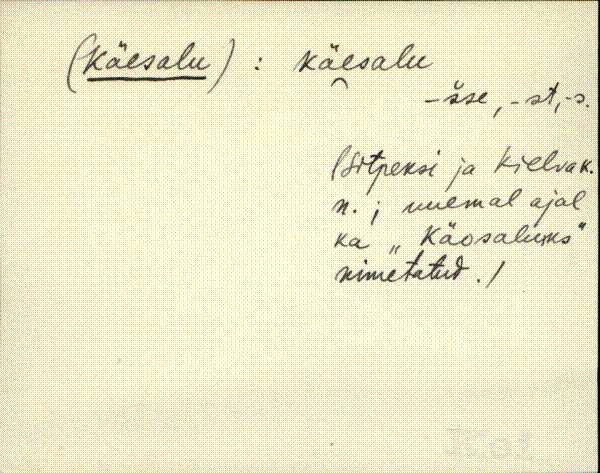 (Käesalu) : käesalu
-sse, -st, -s.
/Sitpeksi ja Kielvak.
n. ; uuemal ajal
ka „Käosaluks"
nimetatud ./
Kei